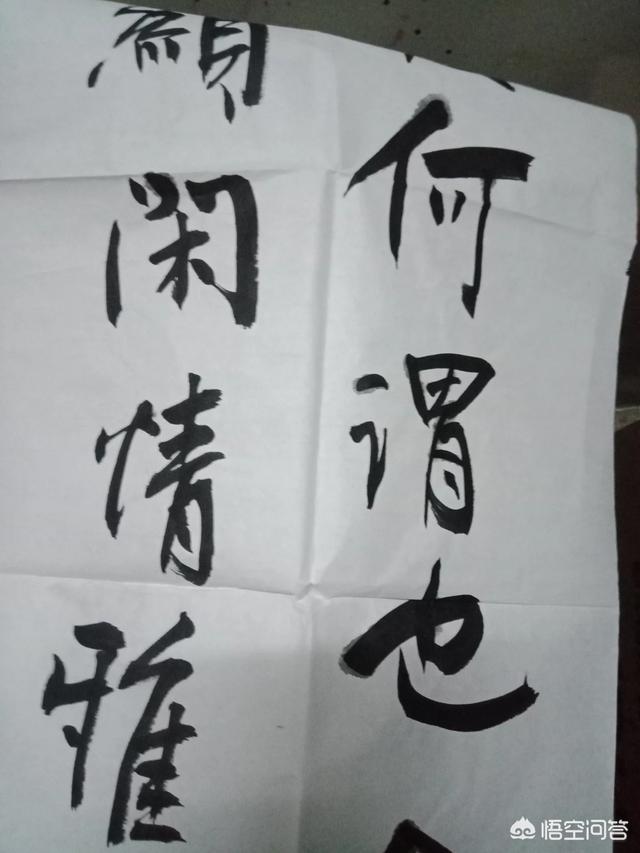 何谓也
闲情雅
悟空问答